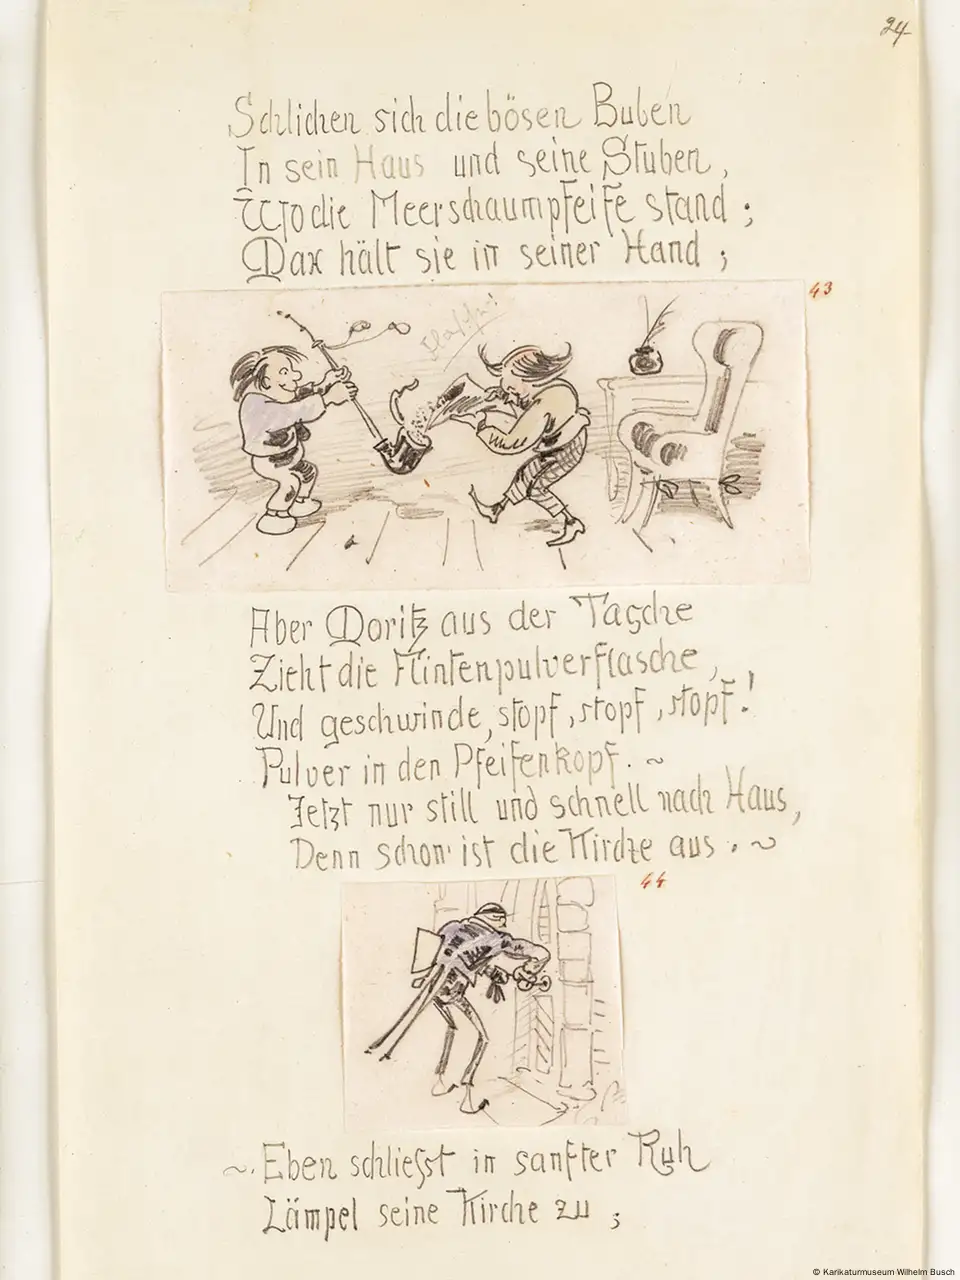 24
Schlichen sich die bösen Buben
In sein Haus und seine Stuben,
Wo die Meerschaumpfeife stand;
Max hält sie in seiner Hand;
43
Aber Moritz aus der Tasche
Zieht die Flintenpulverflasche,
Und geschwinde, stopf, stopf, stopf!
Pulver in den Pfeifenkopf. ~
Jetzt nur still und schnell nach Haus,
Denn schon ist die Kirche aus. ~
44
~. Eben schliesst in sanfter Ruh
Lämpel seine Kirche zu;
© Karikaturmuseum Wilhelm Busch